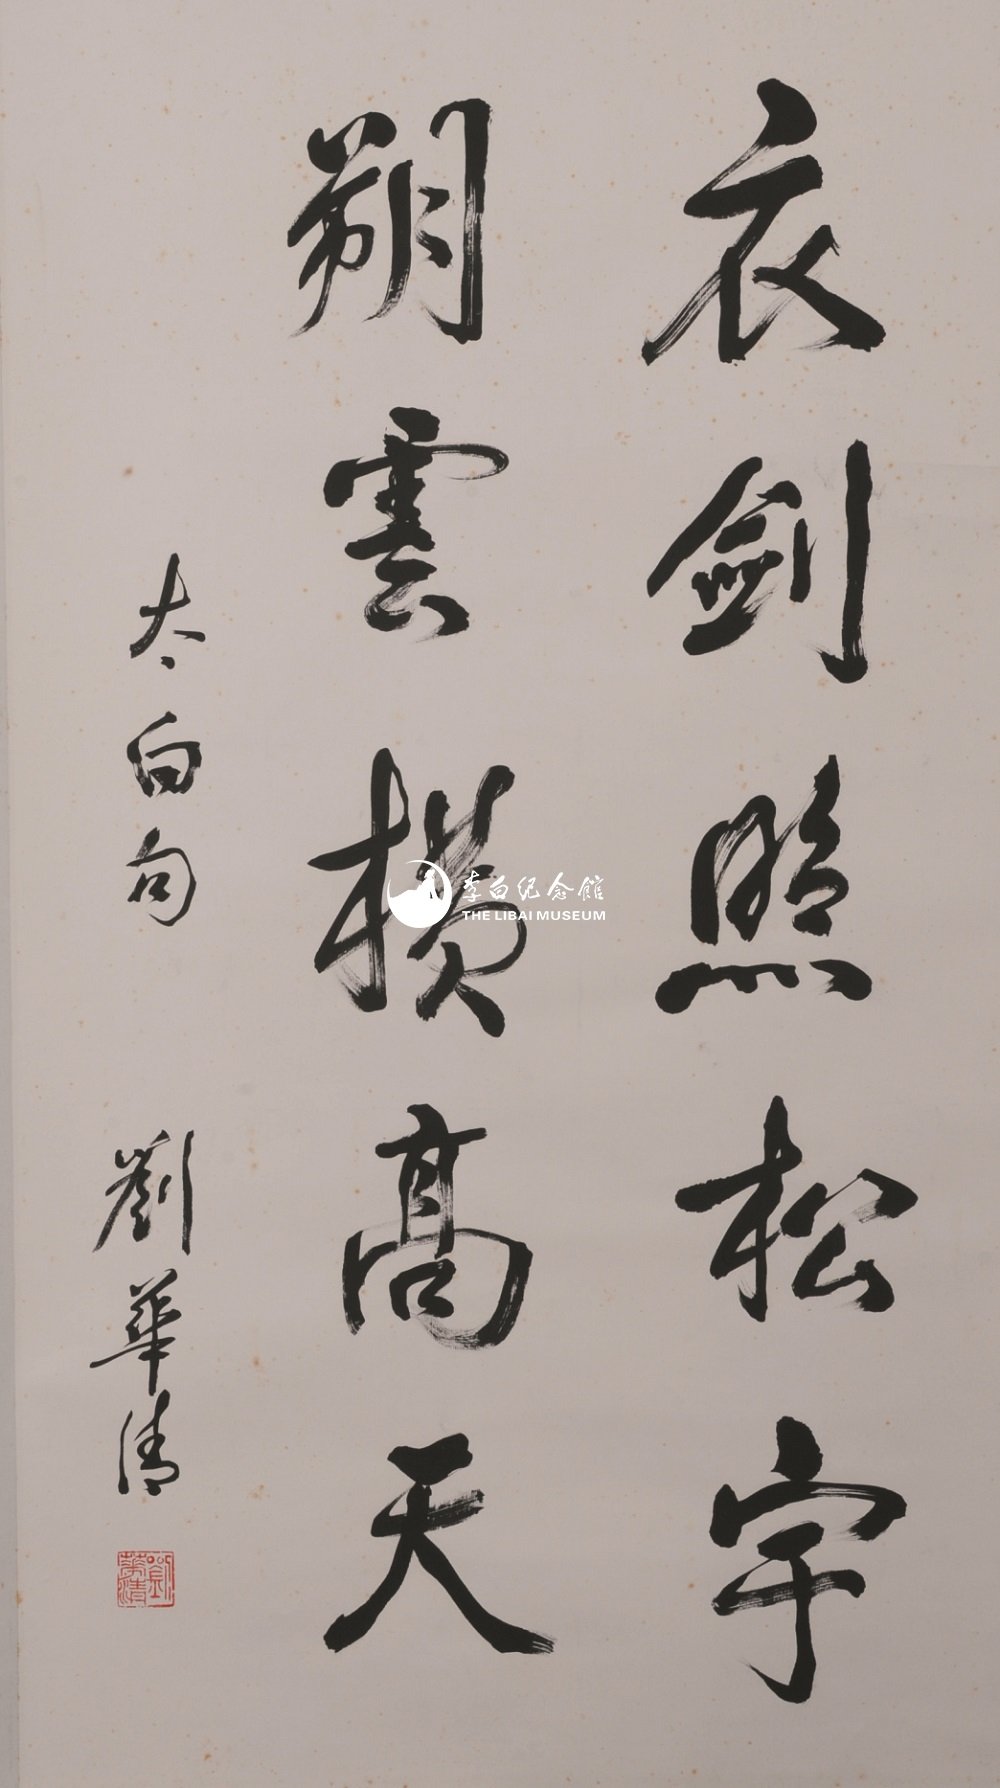 衣劍照松宇
朔雲橫高天
太白句
劉華清
劉華清
李白纪念馆
THE LIBAI MUSEUM